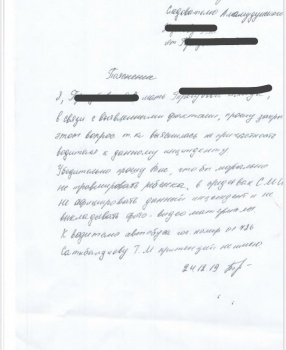 Следователю Аламудунского
от
Пояснение
Я, мать
в связи с выявленными фактами, прошу закрыть
этот вопрос т.к. выяснилась не причастность
водителя к данному инциденту
Убедительно прошу Вас, чтобы морально
не травмировать ребенка, в придачах С.М.И
не афишировать данный инцидент и не
выкладывать фото-видео материалы
К водителю автобуса гос номер 01 436
Сатыбалдиеву Т.М претензий не имею
24.12.19